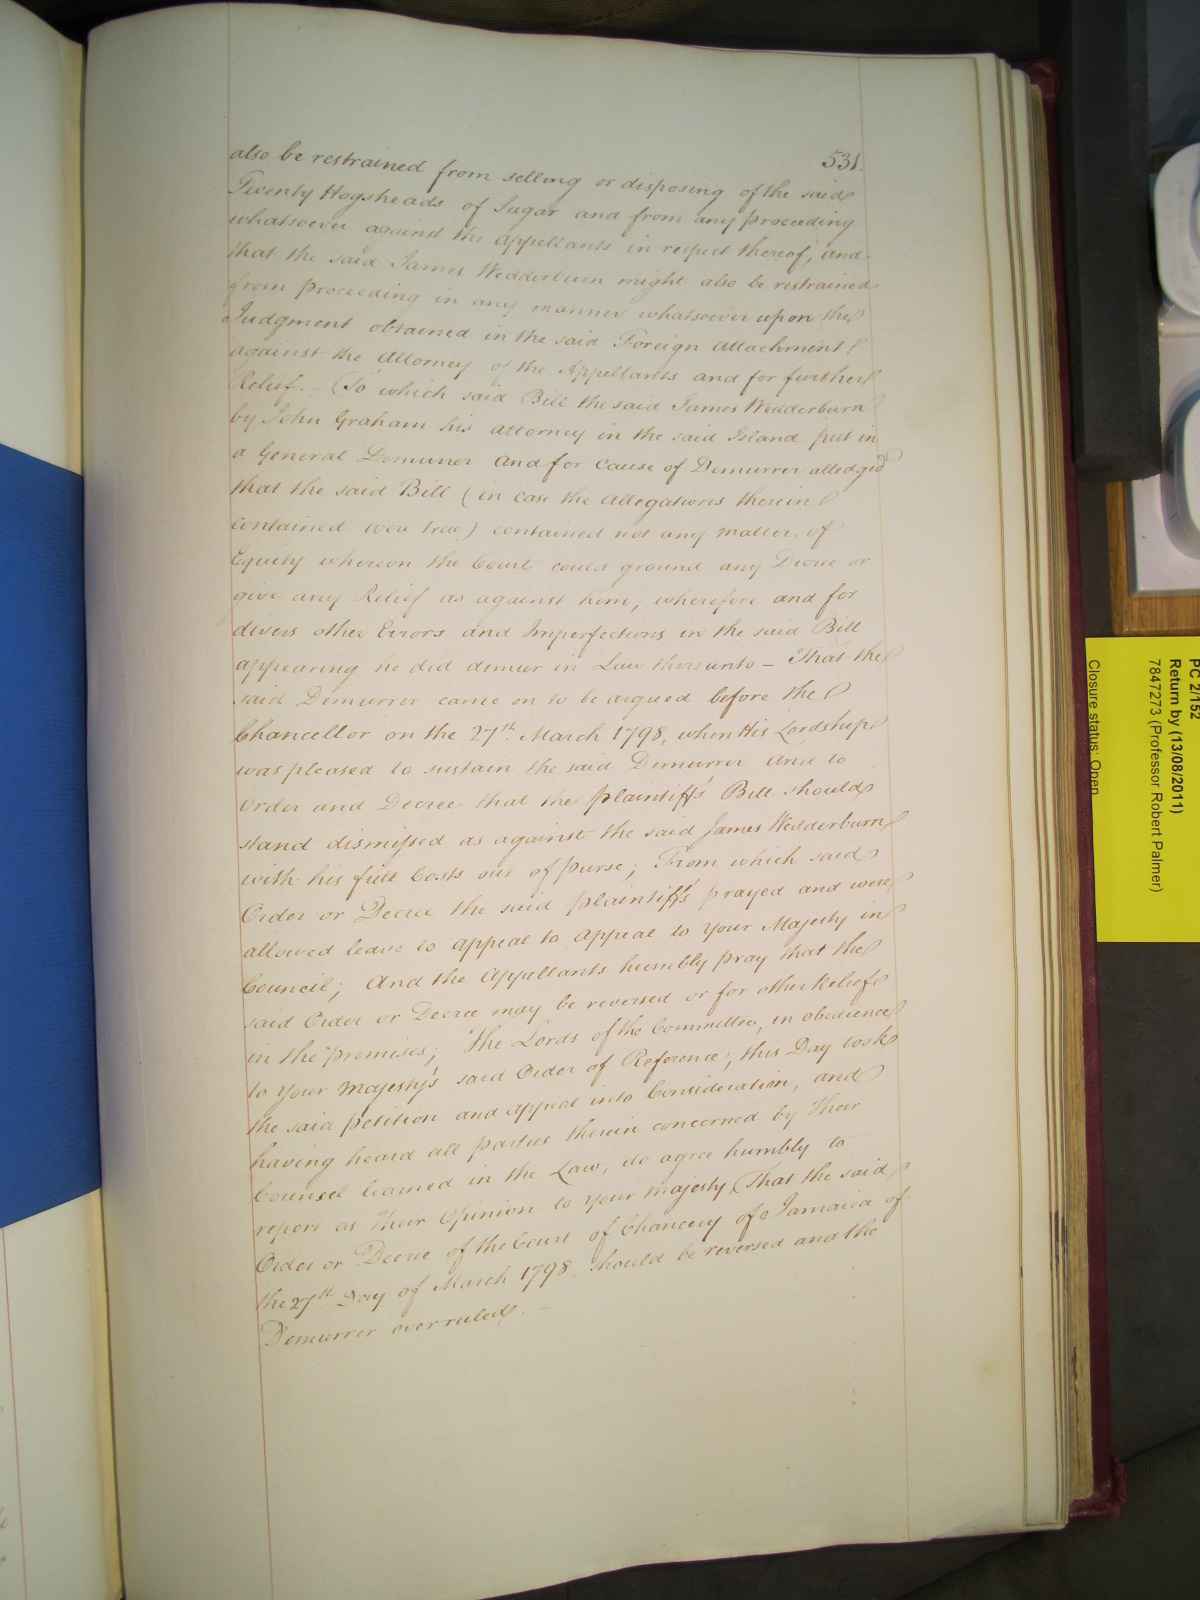 531.
also be restrained from selling or disposing of the said
Twenty Hogsheads of Sugar and from any proceeding
whatsoever against the Appellants in respect thereof, and
that the said James Wedderburn might also be restrained
from proceeding in any manner whatsoever upon the
Judgment obtained in the said Foreign attachment
against the Attorney of the Appellants and for further
Relief. - To which said Bill the said James Wedderburn
by John Graham his attorney in the said Island put in
a General Demurrer and for Cause of Demurrer alledged
that the said Bill (in case the Allegations therein
contained were true) contained not any matter of
Equity whereon the Court could ground any Decree or
give any Relief as against him; wherefore and for
divers other Errors and Imperfections in the said Bill
appearing he did demur in Law thereunto - That the
said Demurrer came on to be argued before the
Chancellor on the 27th March 1798, when His Lordship
was pleased to sustain the said Demurrer and to
Order and Decree that the plaintiff's Bill should
stand dismissed as against the said James Wedderburn
with his full Costs out of purse; From which said
Order or Decree the said plaintiff's prayed and were
allowed leave to appeal to appeal to Your Majesty in
Council; And the Appellants humbly pray that the
said Order or Decree may be reversed or for other Relief
in the premises; The Lords of the Committee, in obedience
to Your Majesty's said Order of Reference, this Day took
the said petition and appeal into Consideration, and
having heard all parties therein concerned by their
Counsel learned in the Law, do agree humbly to
report as their Opinion to Your Majesty That the said
Order or Decree of the Court of Chancery of Jamaica of
the 27th Day of March 1798, should be reversed and the
Demurrer over ruled. -
PC 2/152
Return by (13/08/2011)
7847273 (Professor Robert Palmer)
Closure status: Open